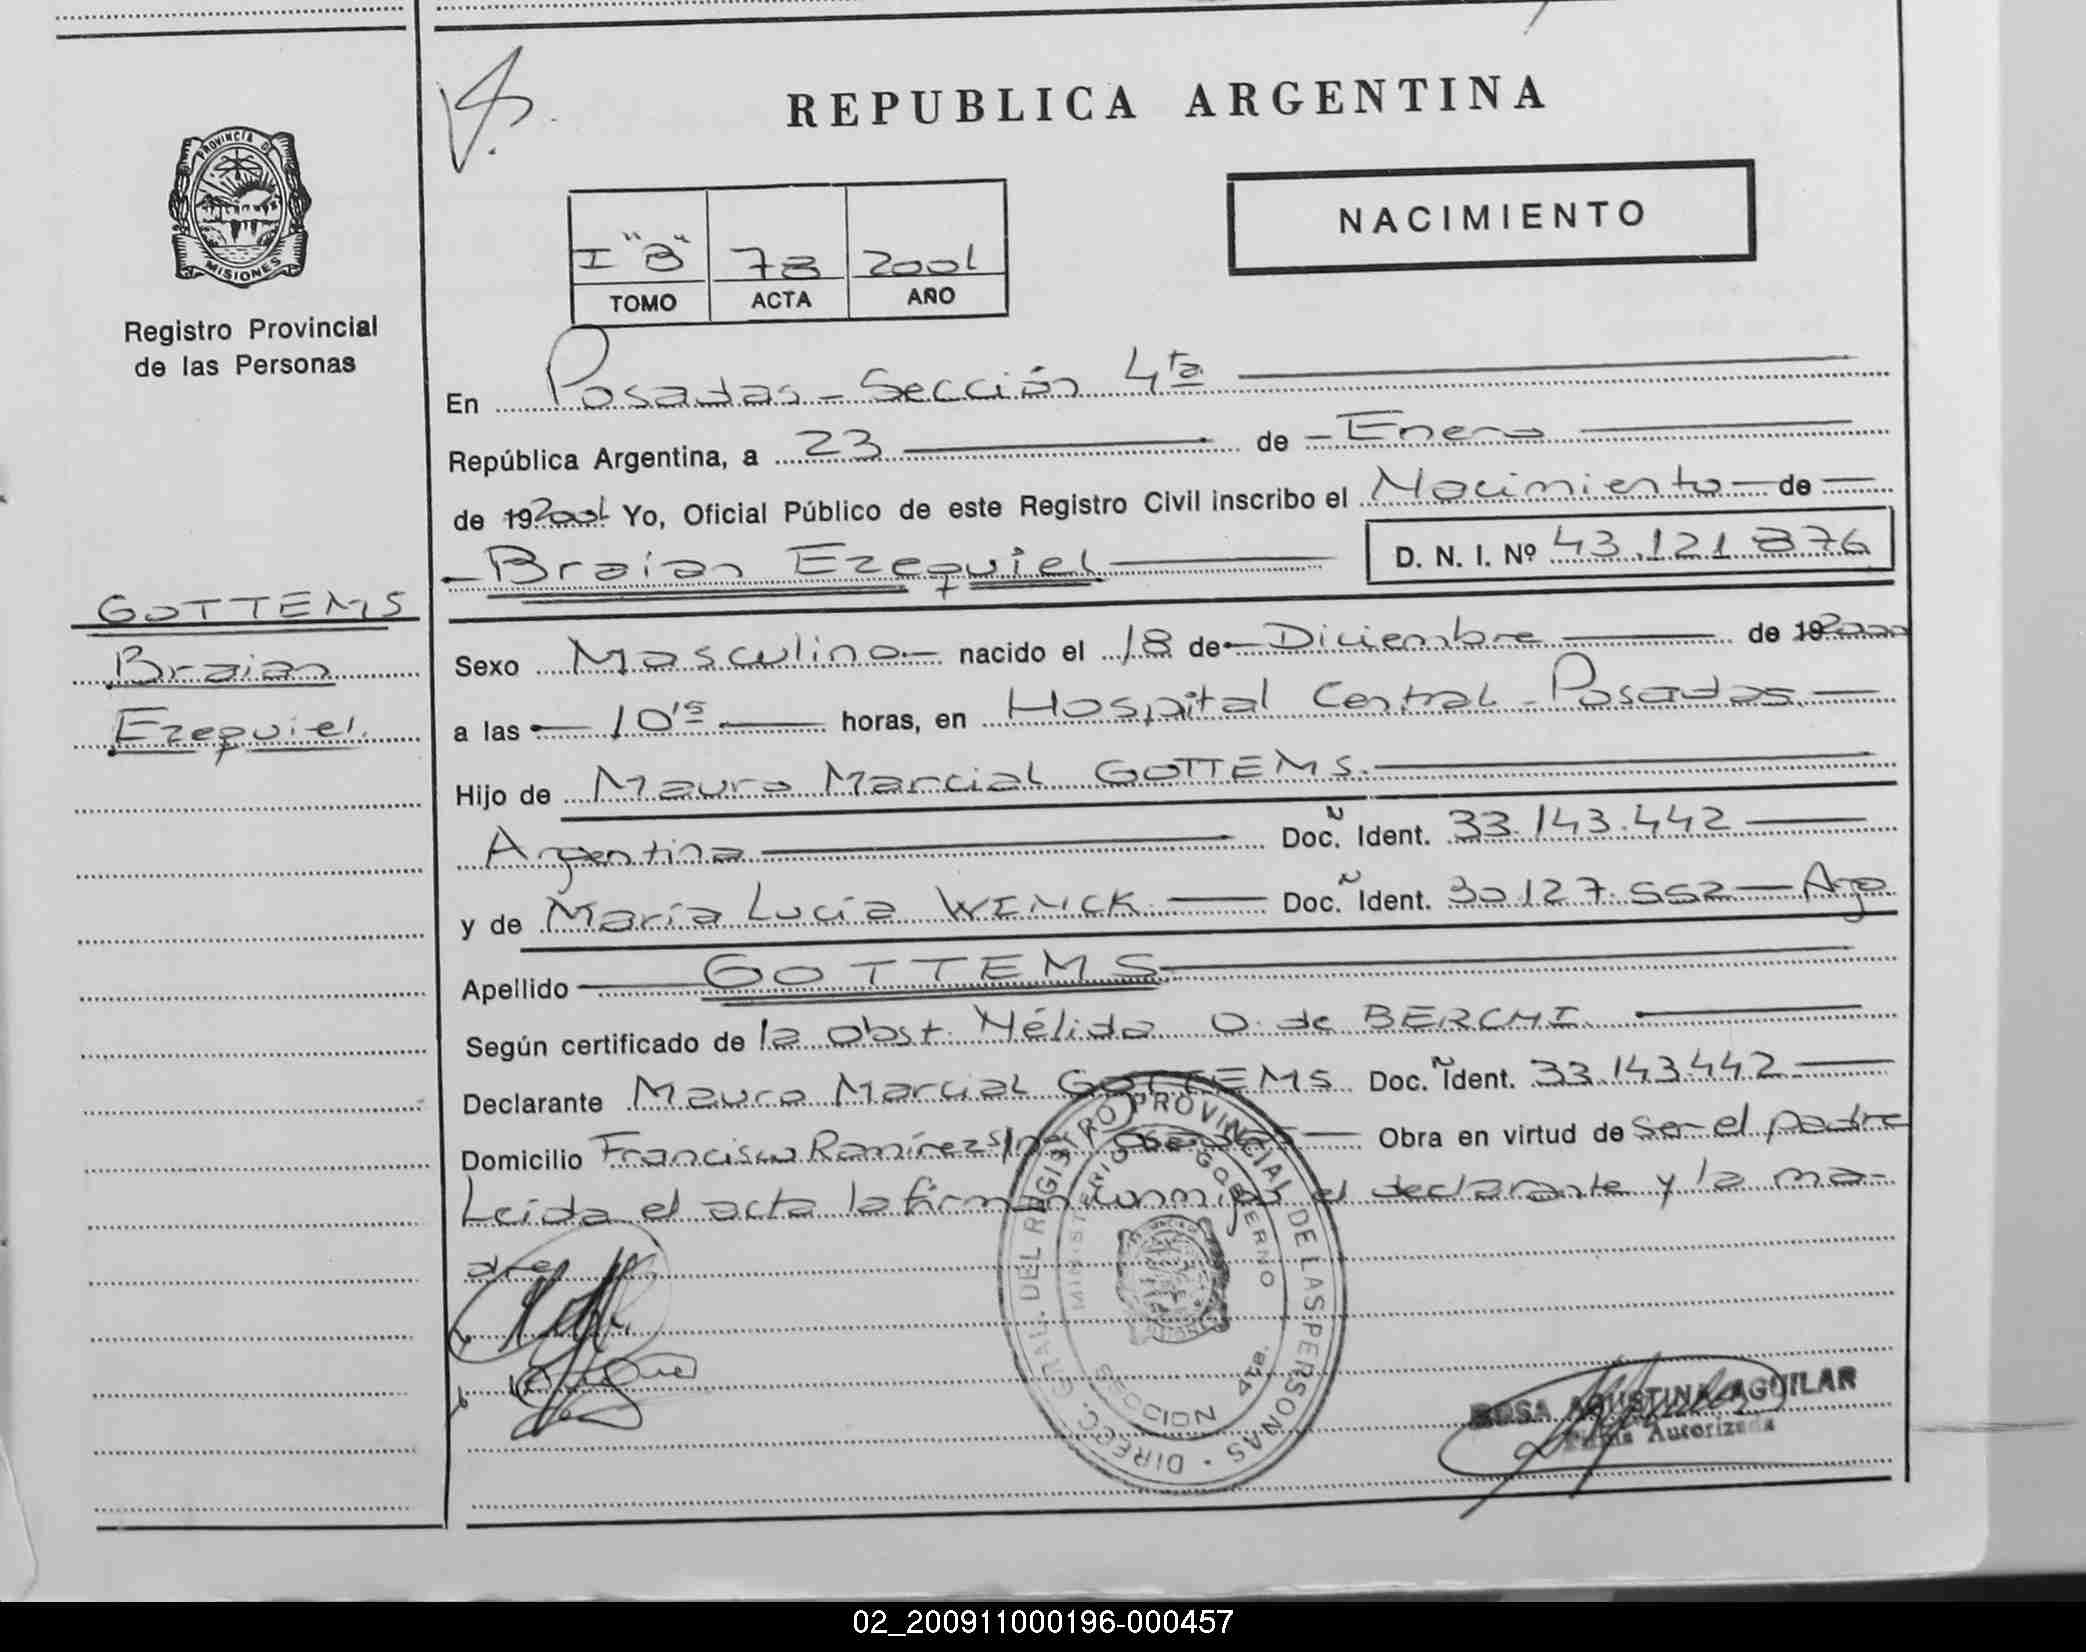 REPUBLICA ARGENTINA
PROVINCIA DE
MISIONES
NACIMIENTO
I "B" 78 2001
TOMO ACTA AÑO
Registro Provincial
de las Personas
En Posadas - Sección 4ta
República Argentina, a 23 de Enero
de 19 2001 Yo, Oficial Público de este Registro Civil inscribo el Nacimiento de
Braian Ezequiel D. N. I. Nº 43.121.876
GOTTEMS
Braian
Ezequiel.
Sexo Masculino nacido el 18 de Diciembre de 19 2000
a las 10 15 horas, en Hospital Central - Posadas.
Hijo de Mauro Marcial GOTTEMS.
Argentina Doc. Ident. 33.143.442
y de María Lucía WENCK Doc. Ident. 30.127.552 - Arg
Apellido GOTTEMS
Según certificado de la Obst. Nélida O. de BERCHI
Declarante Mauro Marcial GOTTEMS Doc. Ident. 33.143.442
Domicilio Francisco Ramírez s/n Obra en virtud de ser el padre
Leida el acta la firman conmigo el declarante y la ma-
dre
DIRECC. GRAL. DEL REGISTRO PROVINCIAL DE LAS PERSONAS
MINISTERIO DE GOBIERNO
SECCION 4ta.
ROSA AGUSTINA AGUILAR
Firma Autorizada
02_200911000196-000457